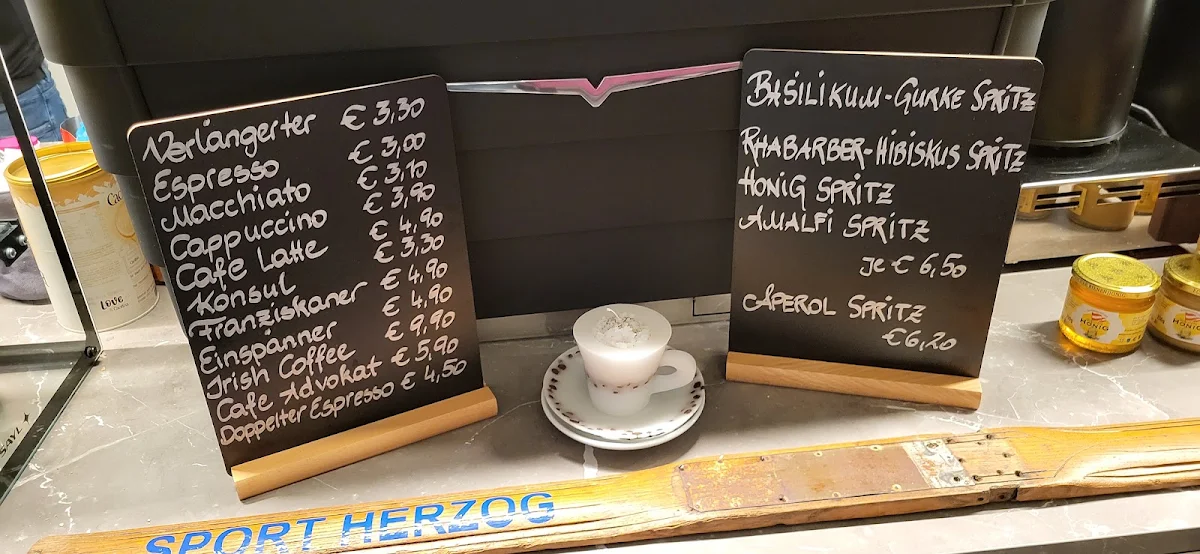 Verlängerter € 3,30
Espresso € 3,00
Macchiato € 3,10
Cappuccino € 3,90
Cafe Latte € 4,90
Konsul € 3,30
Franziskaner € 4,90
Einspänner € 4,90
Irish Coffee € 9,90
Cafe Advokat € 5,90
Doppelter Espresso € 4,50
BASILIKUM-GURKE SPRITZ
RHABARBER-HIBISKUS SPRITZ
HONIG SPRITZ
AMALFI SPRITZ
je € 6,50
APEROL SPRITZ
€ 6,20
Love
HONIG
HONIG
SPORT HERZOG